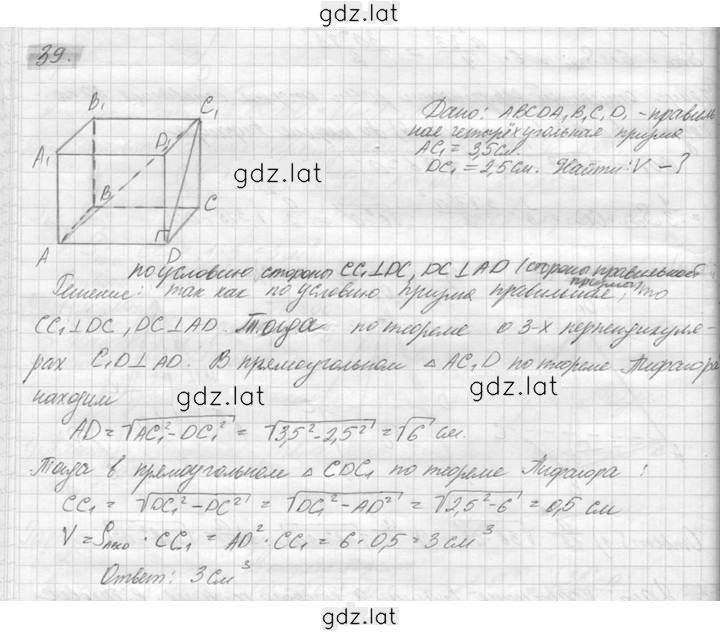 gdz.lat
39.
B₁
C₁
A₁
D₁
B
C
A
D
Дано: ABCDA₁B₁C₁D₁ - правиль
ная четырёхугольная призма
AC₁ = 3,5 см
DC₁ = 2,5 см. Найти: V - ?
gdz.lat
по условию стороны CC₁⊥DC, DC⊥AD (стороны правильной
призмы)
Решение: так как по условию призма правильная, то
CC₁⊥DC, DC⊥AD. Тогда по теореме о 3-х перпендикуля-
рах C₁D⊥AD. В прямоугольном △AC₁D по теореме Пифагора
находим
gdz.lat
gdz.lat
AD = √AC₁² - DC₁² = √3,5² - 2,5² = √6 см.
Тогда в прямоугольном △CDC₁ по теореме Пифагора:
CC₁ = √DC₁² - DC² = √DC₁² - AD² = √2,5² - 6 = 0,5 см
V = Sосн · CC₁ = AD² · CC₁ = 6 · 0,5 = 3 см³
Ответ: 3 см³
gdz.lat